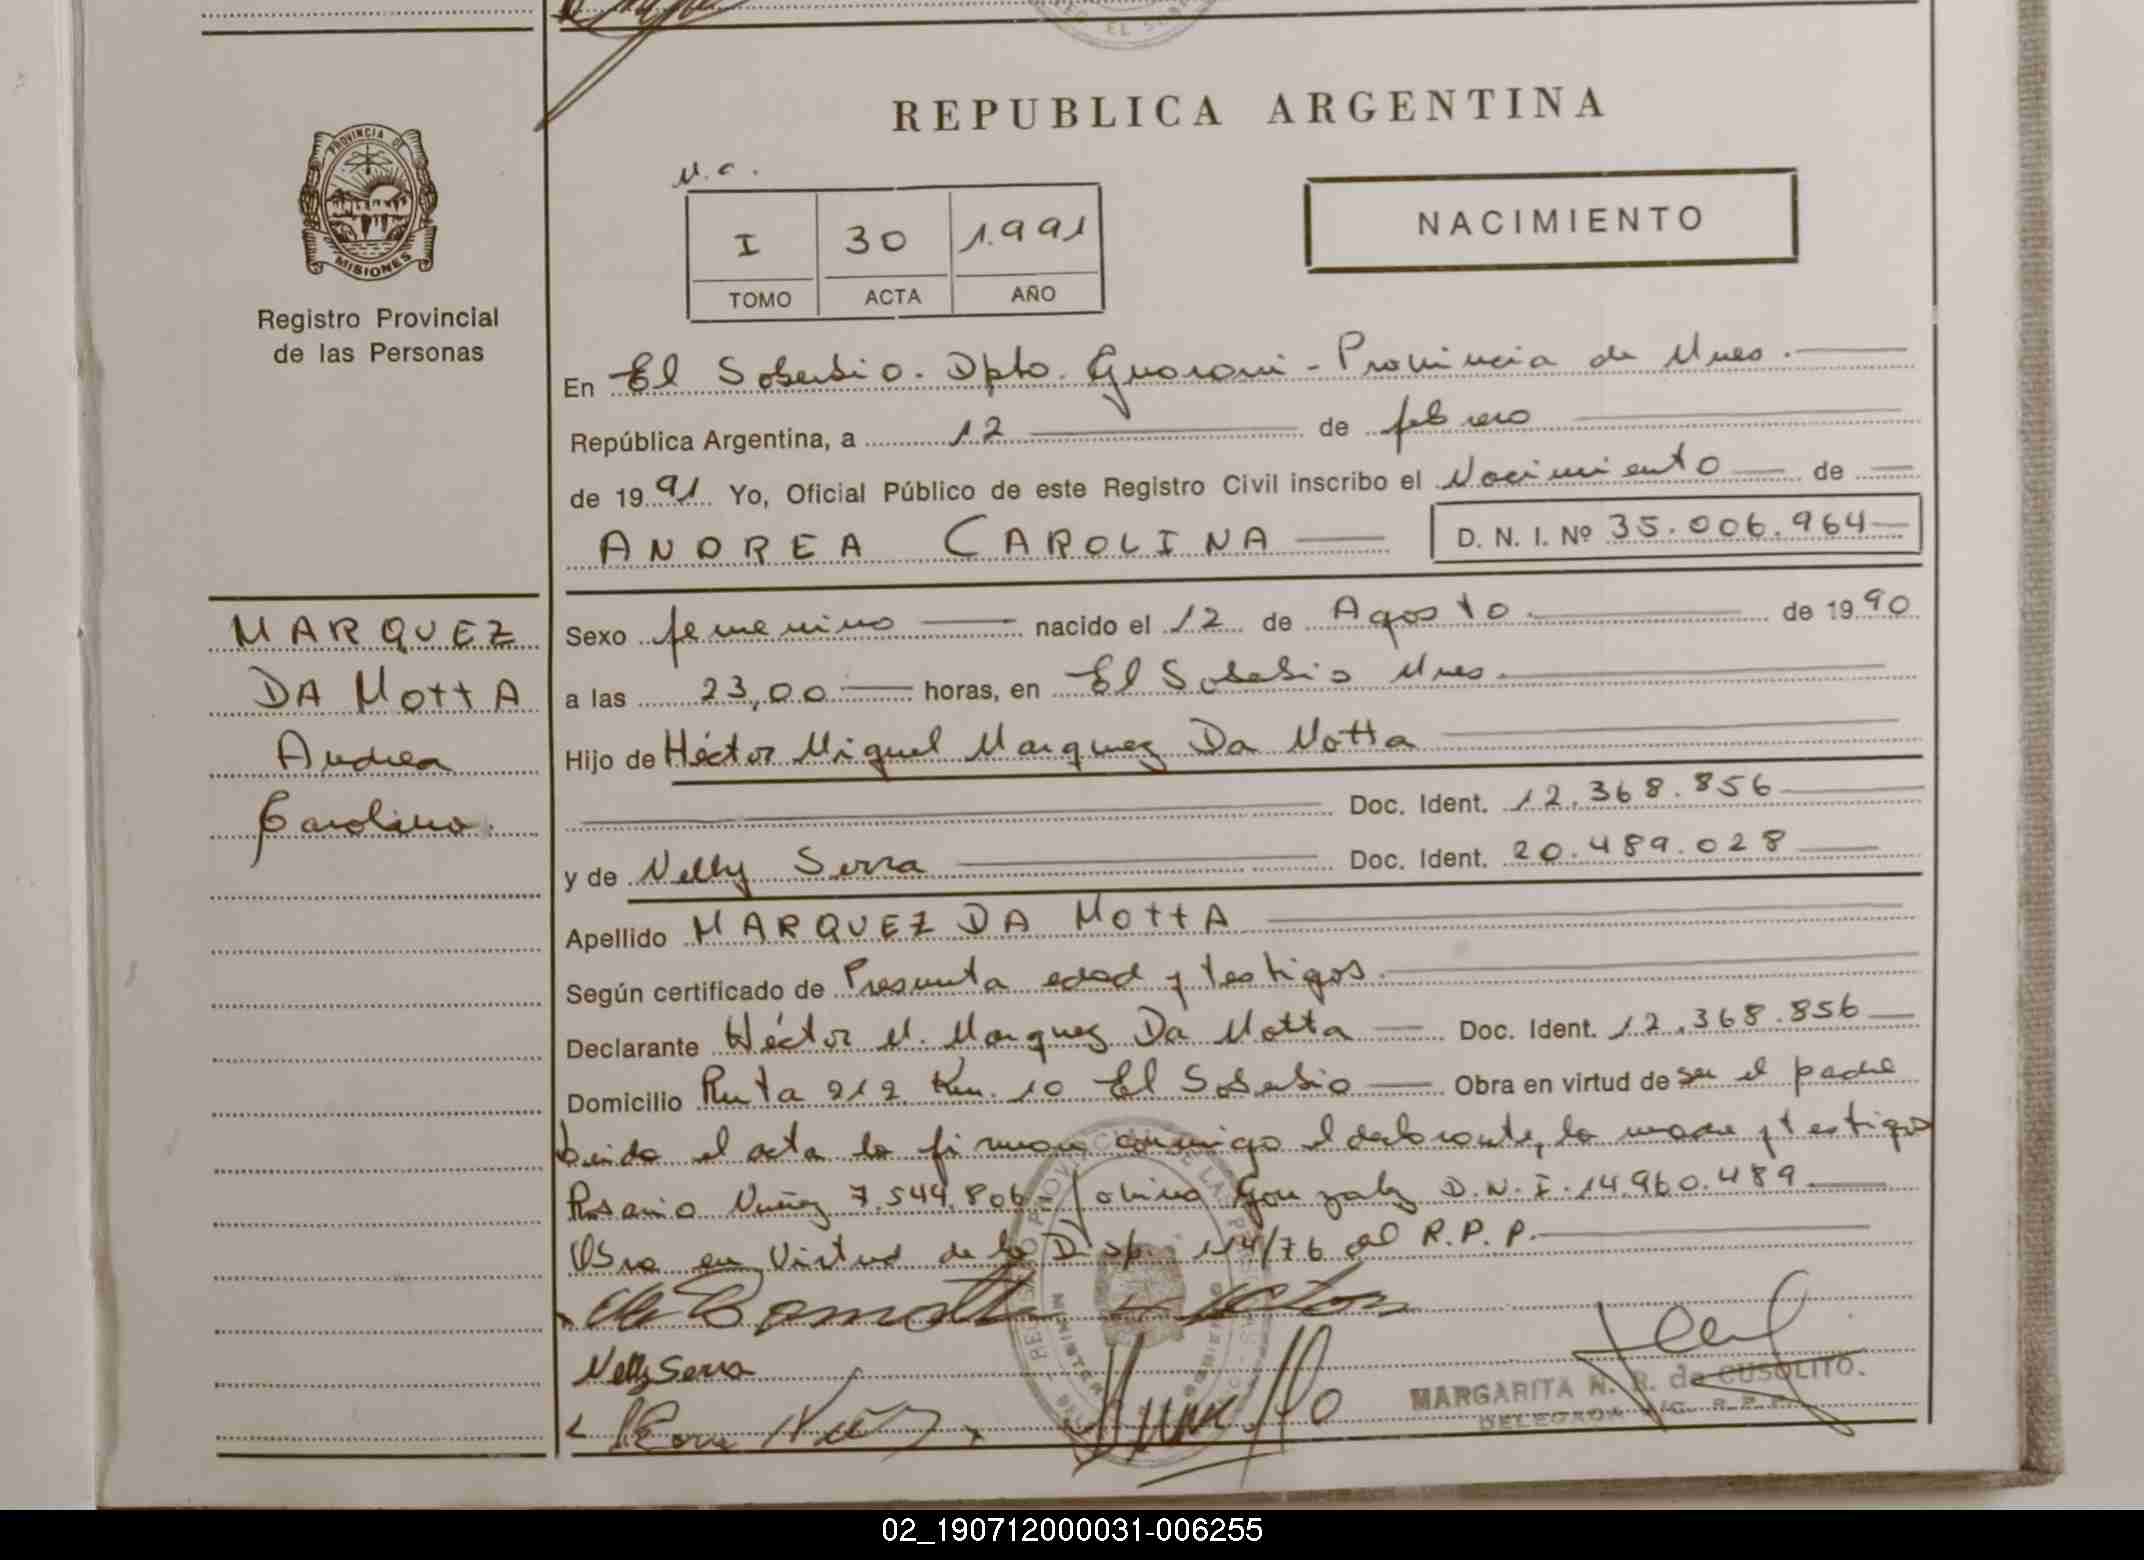 REPUBLICA ARGENTINA
PROVINCIA DE
MISIONES
Registro Provincial
de las Personas
N.C.
I 30 1.991
TOMO ACTA AÑO
NACIMIENTO
En El Soberbio. Dpto. Guarani - Provincia de Mnes.
República Argentina, a 12 de febrero
de 1991 Yo, Oficial Público de este Registro Civil inscribo el Nacimiento de
ANDREA CAROLINA D. N. I. Nº 35.006.964
MARQUEZ
DA MOTTA
Andrea
Carolina.
Sexo femenino nacido el 12 de Agosto de 1990
a las 23,00 horas, en El Soberbio Mnes.
Hijo de Héctor Miguel Marquez Da Motta
Doc. Ident. 12.368.856
y de Nelly Serra Doc. Ident. 20.489.028
Apellido MARQUEZ DA MOTTA
Según certificado de Presunta edad y testigos.
Declarante Héctor M. Marquez Da Motta Doc. Ident. 12.368.856
Domicilio Ruta 212 Km. 10 El Soberbio Obra en virtud de ser el padre
Leida el acta la firman conmigo el declarante, la madre y testigos
Rosario Nuñez 7.544.806 - Gonzalez D.N.I. 14.960.489
Obra en Virtud de la Disp. 114/76 del R.P.P.
Nelly Serra
MARGARITA N. R. de CUSOLITO.
DELEGADA R.P.P.
02_190712000031-006255